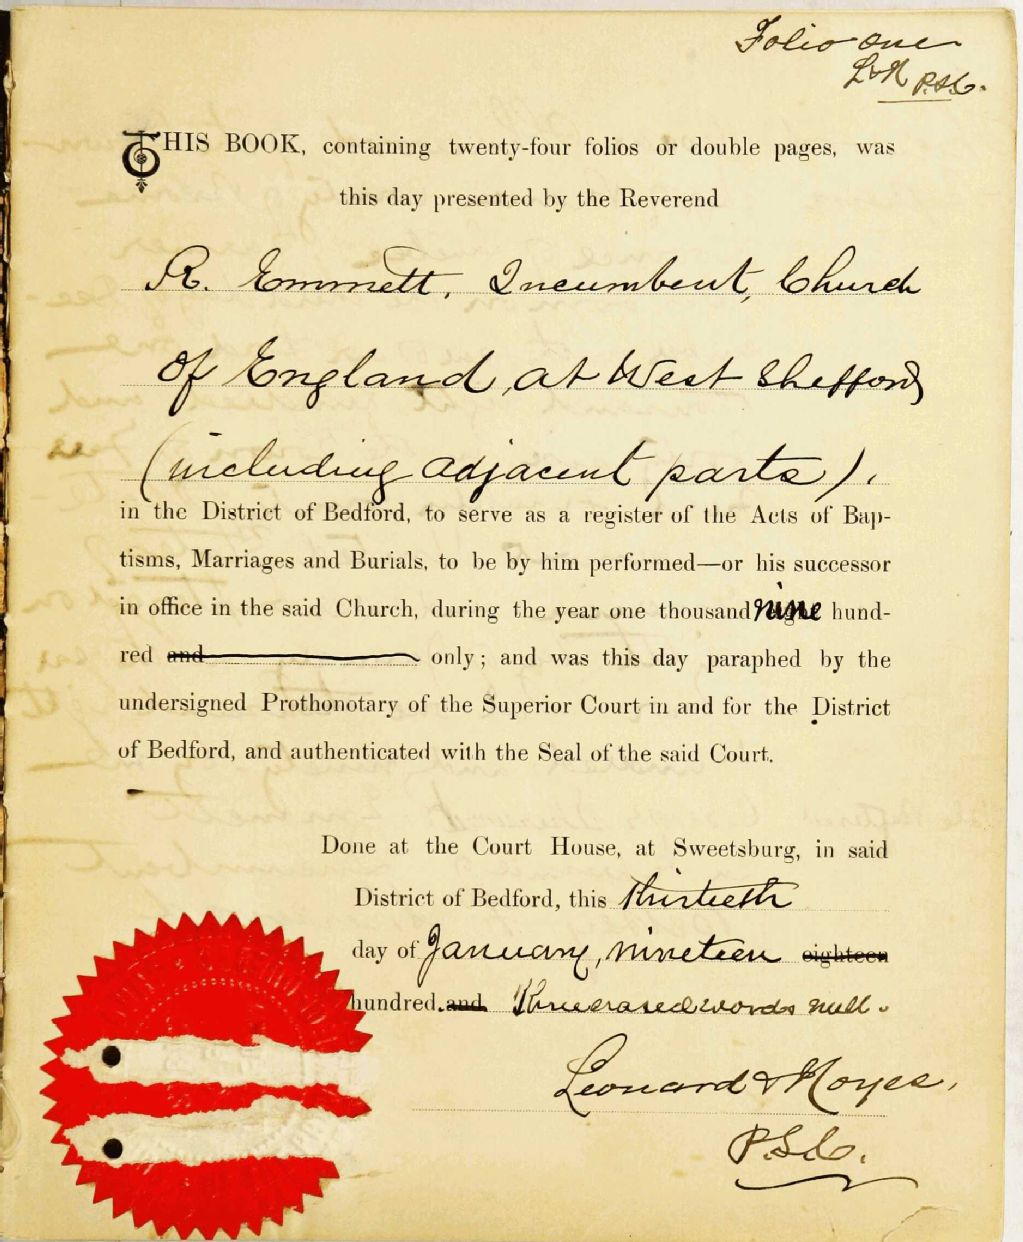 Folio one
L & N P.S.C.
THIS BOOK, containing twenty-four folios or double pages, was
this day presented by the Reverend
R. Emmett, Incumbent, Church
of England, at West Shefford
(including adjacent parts),
in the District of Bedford, to serve as a register of the Acts of Bap-
tisms, Marriages and Burials, to be by him performed—or his successor
in office in the said Church, during the year one thousand nine hund-
red and only; and was this day paraphed by the
undersigned Prothonotary of the Superior Court in and for the District
of Bedford, and authenticated with the Seal of the said Court.
Done at the Court House, at Sweetsburg, in said
District of Bedford, this thirtieth
day of January, nineteen eighteen
hundred and Three erased words null.
Leonard & Noyes,
P.S.C.